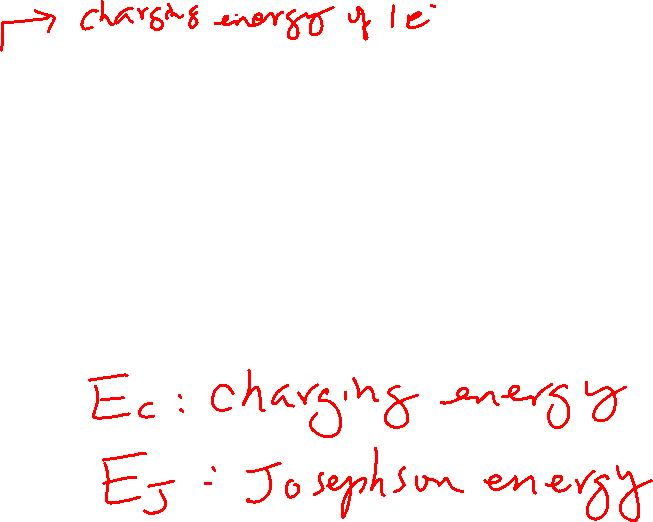 → charging energy of 1 e⁻
Ec : charging energy
EJ : Josephson energy